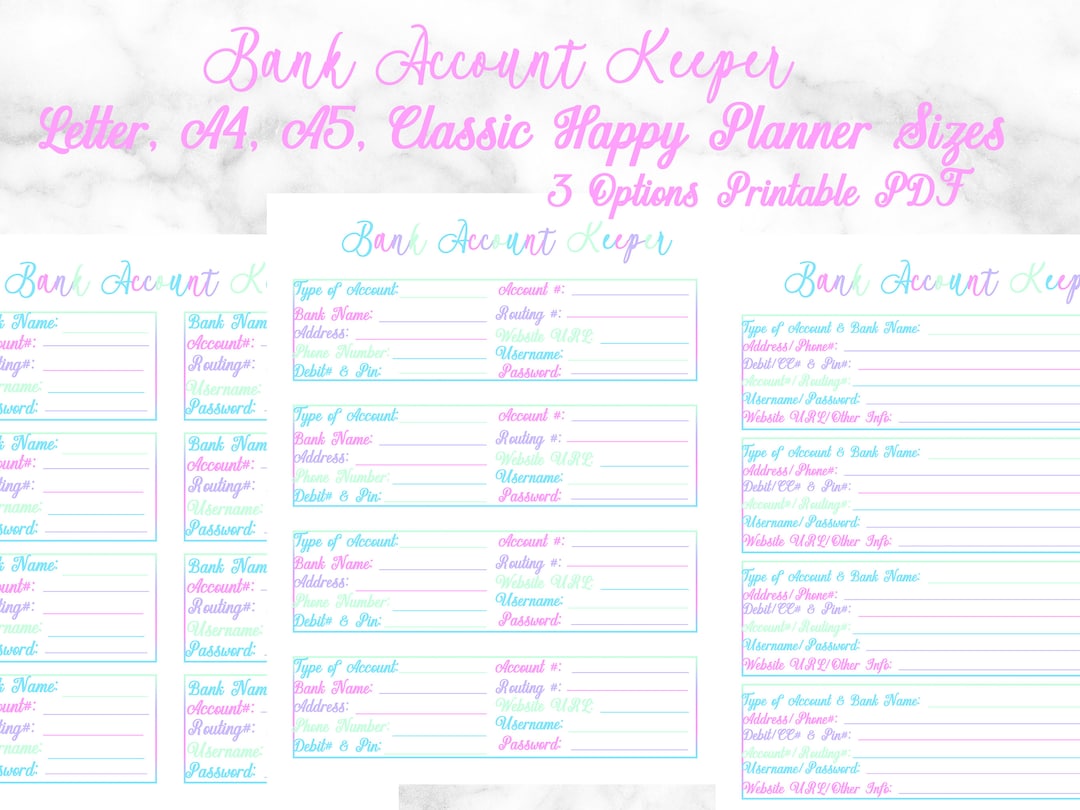 Bank Account Keeper
Letter, A4, A5, Classic Happy Planner Sizes
3 Options Printable PDF
Bank Account K
k Name:
Bank Nam
ount#:
Account#:
ting#:
Routing#:
rname:
Username:
sword:
Password:
k Name:
Bank Nam
ount#:
Account#:
ting#:
Routing#:
rname:
Username:
sword:
Password:
k Name:
Bank Nam
ount#:
Account#:
ting#:
Routing#:
rname:
Username:
sword:
Password:
k Name:
Bank Nam
ount#:
Account#:
ting#:
Routing#:
rname:
Username:
sword:
Password:
Bank Account Keeper
Type of Account:
Account #:
Bank Name:
Routing #:
Address:
Website URL:
Phone Number:
Username:
Debit# & Pin:
Password:
Type of Account:
Account #:
Bank Name:
Routing #:
Address:
Website URL:
Phone Number:
Username:
Debit# & Pin:
Password:
Type of Account:
Account #:
Bank Name:
Routing #:
Address:
Website URL:
Phone Number:
Username:
Debit# & Pin:
Password:
Type of Account:
Account #:
Bank Name:
Routing #:
Address:
Website URL:
Phone Number:
Username:
Debit# & Pin:
Password:
Bank Account Keep
Type of Account & Bank Name:
Address/Phone#:
Debit/CC# & Pin#:
Account#/Routing#:
Username/Password:
Website URL/Other Info:
Type of Account & Bank Name:
Address/Phone#:
Debit/CC# & Pin#:
Account#/Routing#:
Username/Password:
Website URL/Other Info:
Type of Account & Bank Name:
Address/Phone#:
Debit/CC# & Pin#:
Account#/Routing#:
Username/Password:
Website URL/Other Info:
Type of Account & Bank Name:
Address/Phone#:
Debit/CC# & Pin#:
Account#/Routing#:
Username/Password:
Website URL/Other Info: